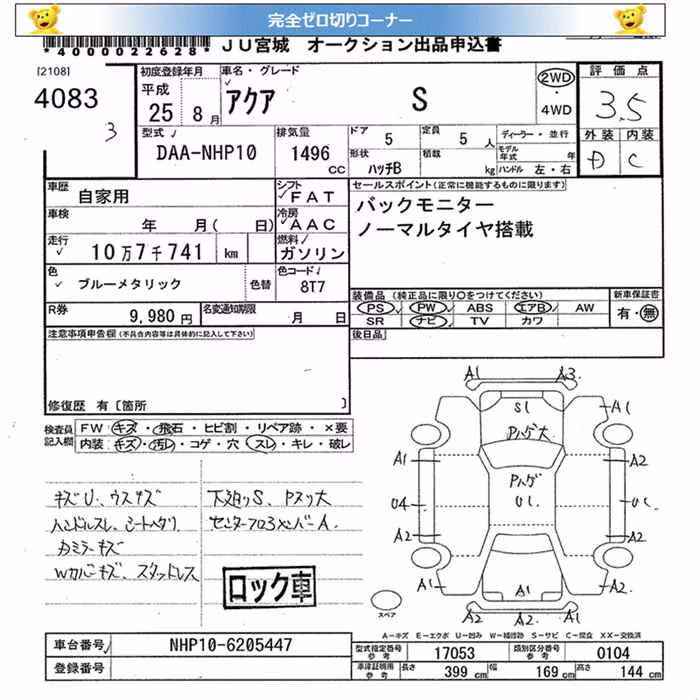 完全ゼロ切りコーナー
*4000022628* JU宮城 オークション出品申込書
[2108]
4083
3
初度登録年月 平成 25 8月
車名・グレード アクア S
2WD・4WD
評価点 3.5
外装 D 内装 C
型式 DAA-NHP10
排気量 1496 CC
ドア 5 定員 5人
形状 ハッチB 積載 kg
ディーラー・並行
モデル年式 年
ハンドル 左・右
車歴 自家用
シフト FAT
車検 年 月(日)
冷房 AAC
走行 10万7千741 km
燃料 ガソリン
色 ブルーメタリック 色替
色コード 8T7
R券 9,980円
名変通知期限 月 日
セールスポイント(正常に機能するものに限ります)
バックモニター
ノーマルタイヤ搭載
装備品(純正品に限り○をつけてください)
PS PW ABS エアB AW
SR ナビ TV カワ
新車保証書 有・無
後日品
注意事項申告欄(不具合内容等は具体的に記入して下さい)
修復歴 有[箇所 ]
検査員記入欄
FW キズ・飛石・ヒビ割・リペア跡・×要
内装 キズ・汚レ・コゲ・穴・スレ・キレ・破レ
キズU、ウスキズ
ハンドルスレ、シートヘタリ
カミラーキズ
Wカバーキズ、スタッドレス
下廻りS、Pヌリ大
センターフロアメンバーA
ロック車
A1 A3
S1
A1
Pハゲ大
A1 A2
Pハゲ
U1
U4
A2 A2
A1 A1 A2
A2 A2
スペア
A-キズ E-エクボ U-凹み W-補修跡 S-サビ C-腐食 XX-交換済
車台番号 NHP10-6205447
登録番号
型式指定番号 参考 17053
類別区分番号 参考 0104
車庫証明用 参考 長さ 399cm 幅 169cm 高さ 144cm